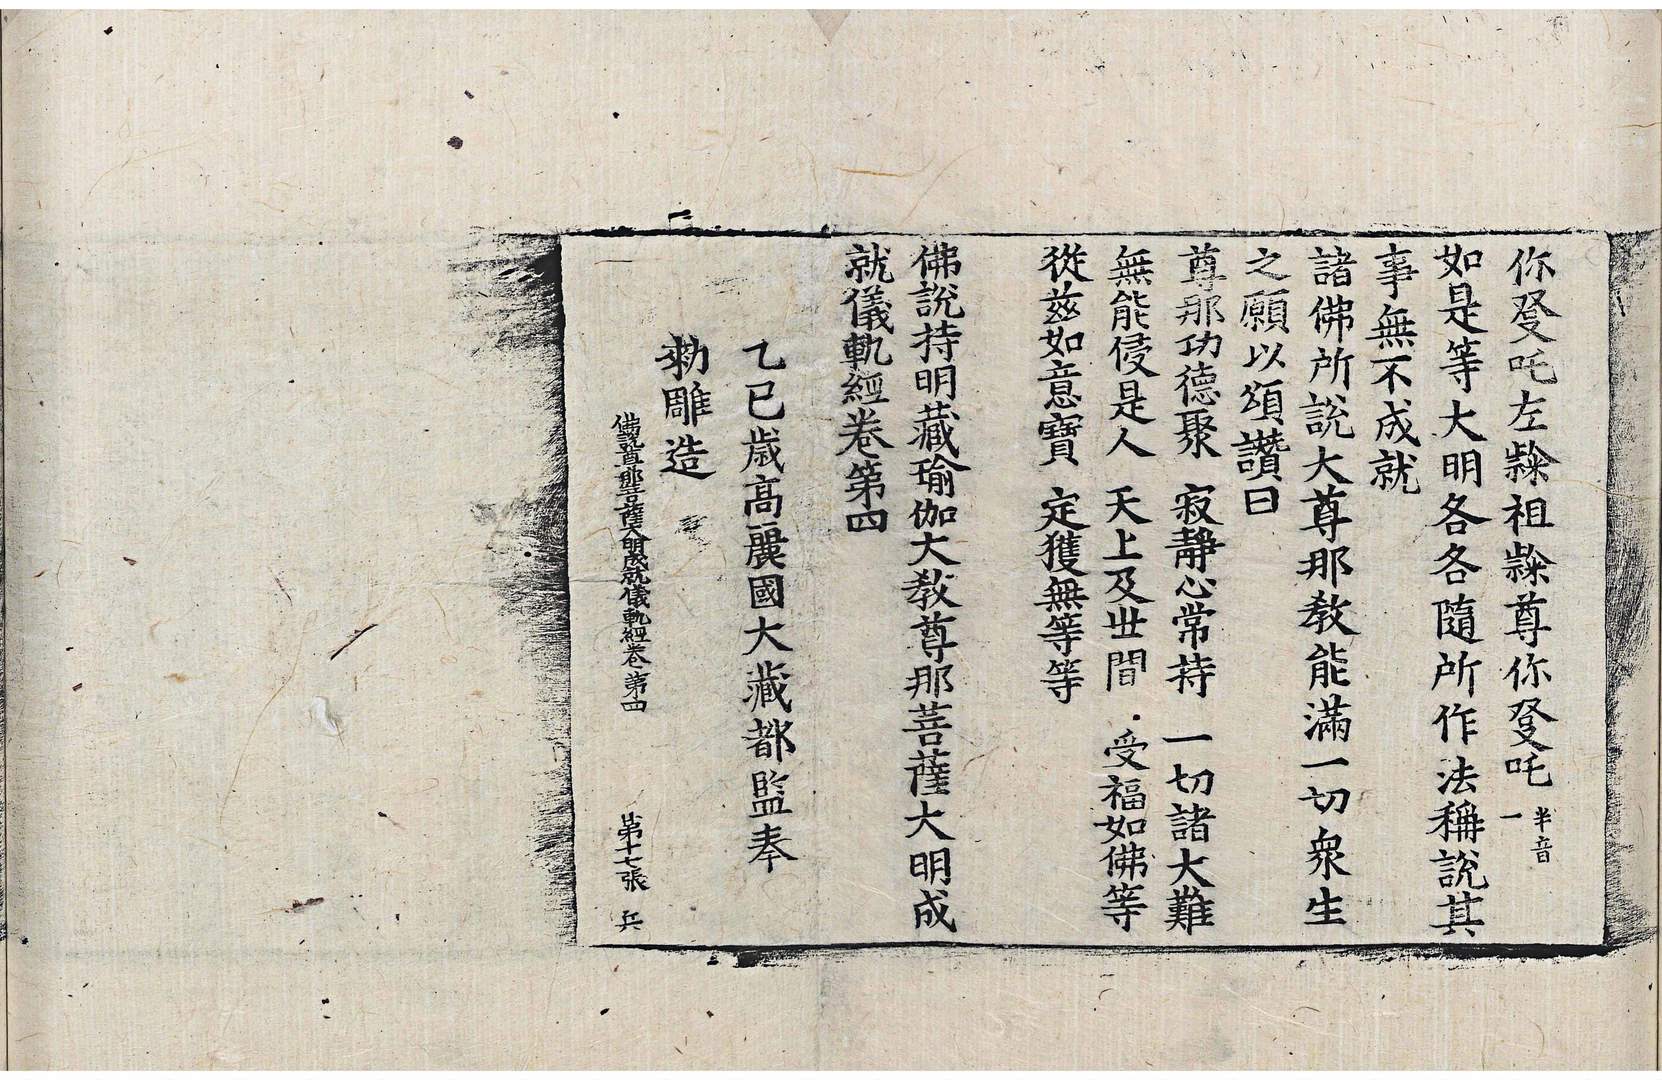 你發吒左隸祖隸尊你發吒半音一
如是等大明各各隨所作法稱說其
事無不成就
諸佛所說大尊那教能滿一切衆生
之願以頌讚曰
尊那功德聚 寂靜心常持 一切諸大難
無能侵是人 天上及世間 受福如佛等
從兹如意寶 定獲無等等
佛說持明藏瑜伽大教尊那菩薩大明成
就儀軌經卷第四
乙巳歲高麗國大藏都監奉
勑雕造
佛說尊那菩薩大明成就儀軌經卷第四 第十七張 兵